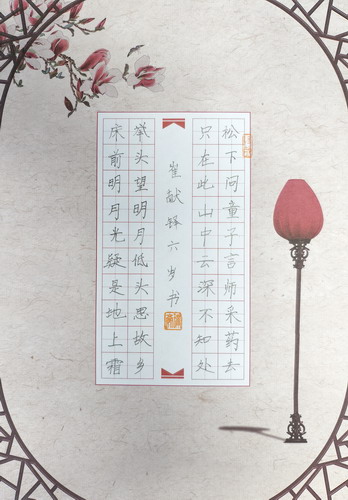 松下问童子言师采药去
只在此山中云深不知处
崔献铎六岁书
床前明月光疑是地上霜
举头望明月低头思故乡